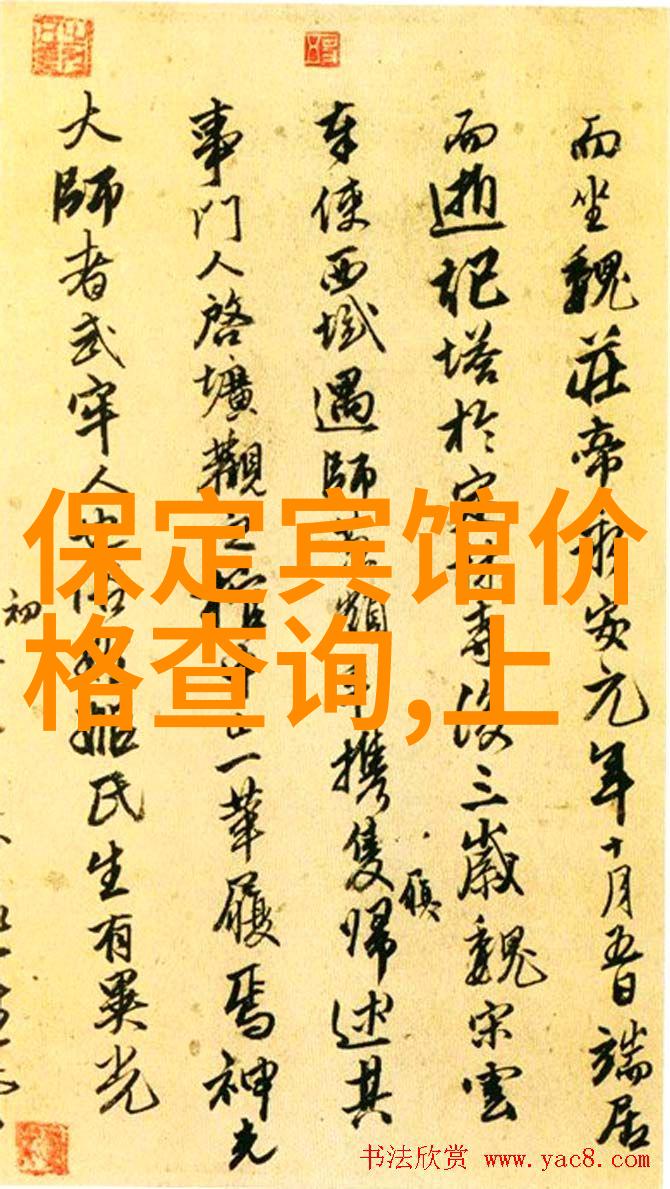 而坐魏莊帝永安元年十月五日端居
而逝記塔於定林寺後三歲魏宋雲
奉使西域遇師嶺手攜隻歸述其
履
事門人啓壙觀之棺中止一革履焉神光
大師者武牢人也俗姓姬氏生有異光
初
保定宾馆价
格查询,上
书法欣赏 www.yac8.com